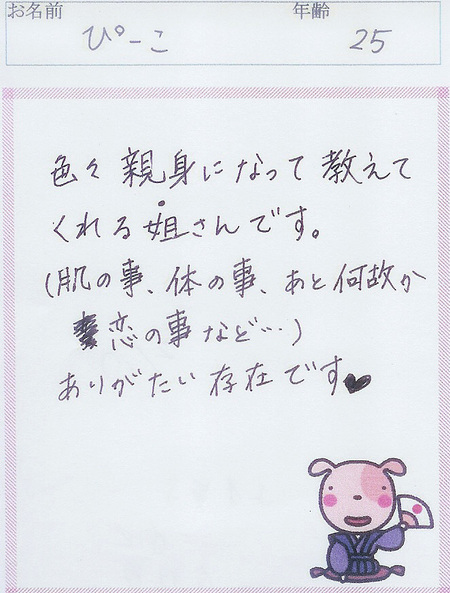 お名前 年齢
ぴーこ 25
色々親身になって教えて
くれる姐さんです。
(肌の事、体の事、あと何故か
恋の事など…)
ありがたい存在です♥